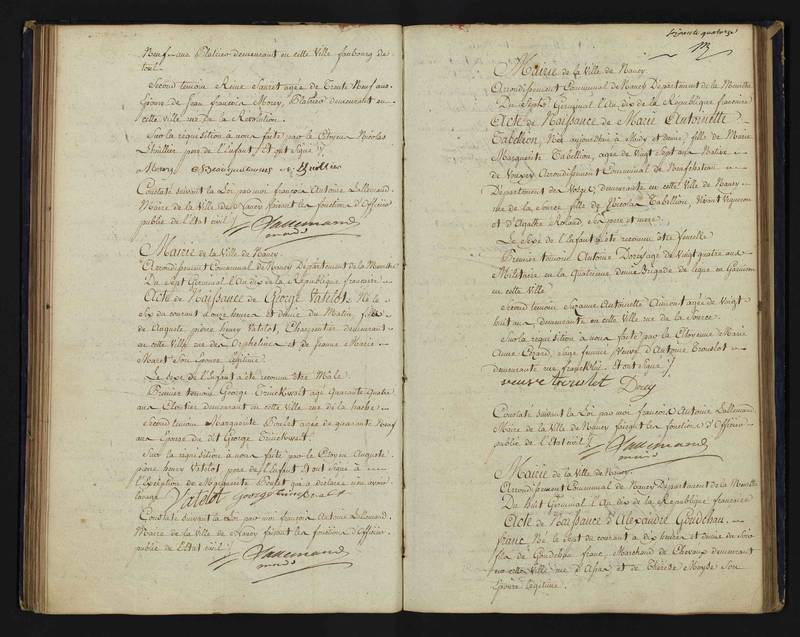 Neuf ans Platrier demeurant en cette Ville faubourg de
toul
Second temoin Reine Sauret agée de Trente Neuf ans
Epouse de Jean françois Morey, Platrier demeurant en
cette ville rue De la Revolution.
Sur la réquisition à nous faite par le Citoyen Nicolas
Thuillier pere de l'Enfant Et ont Signé
Constaté suivant la Loi par moi françois Antoine Lallemand
Maire de la Ville de Nancy faisant les fonctions d'Officier
public de l'Etat civil
Lallemand
Mairie de la Ville de Nancy.
Arrondissement Communal de Nancy Département de la Meurthe
Du Sept Germinal l'An dix de la République francaise
Acte de Naissance de George Vatelot Né le
Six du courant à onze heures et demie du Matin, fils
de Auguste pierre henry Vatelot, Charpentier demeurant
en cette ville rue des Orphelines et de Jeanne Marie
Son Epouse légitime
Le sexe de l'Enfant a été reconnu être Mâle.
Premier temoin George Trinckwalt agé Quarante Quatre
ans Cloutier demeurant en cette Ville rue de la hache
Second temoin Marguerite Poulet agée de quarante Neuf
ans Epouse du dit George Trinckwalt.
Sur la réquisition à nous faite par le Citoyen Auguste
pierre henry Vatelot pere de l'Enfant Et ont Signé à
l'Exception de Marguerite Poulet qui a déclaré n'en avoir
l'usage Vatelot george
Constaté suivant la Loi par moi françois Antoine Lallemand
Maire de la Ville de Nancy faisant les fonctions d'Officier
public de l'Etat civil
Lallemand
Mairie de la Ville de Nancy
Arrondissement Communal de Nancy Département de la Meurthe
Du Sept Germinal l'An dix de la République francaise
Acte de Naissance de Marie Antoinette
Tabellion, Née aujourdhui à Midy et demie, fille de Marie
Marguerite Tabellion, agée de Vingt Sept ans Native
de Arrondissement Communal de Neufchateau
Département des Vosges, demeurante en cette Ville de Nancy
rue de la Source fille de Nicolas Tabellion, Vivant Vigneron
et d'Agathe Roland Ses pere et mere.
Le Sexe de l'Enfant a été reconnu être femelle
Premier temoin Antoine Dorey agé de Vingt quatre ans
Militaire en la Quatrieme demie Brigade de ligne en Garnison
en cette Ville
Second temoin Suzanne Antoinette Aimont agée de Vingt
huit ans demeurante en cette Ville rue de la Source.
Sur la réquisition à nous faite par la Citoyenne Marie
Anne Cézard, Sage femme, Veuve d'Antoine Trouslot
demeurante rue Et ont Signé
veuve trouslot Dorey
Constaté suivant la Loi par moi françois Antoine Lallemand
Maire de la Ville de Nancy faisant les fonctions d'Officier
public de l'Etat civil
Lallemand
Mairie de la Ville de Nancy.
Arrondissement Communal de Nancy Département de la Meurthe
Du huit Germinal l'An dix de la République francaise
Acte de Naissance d'Alexandre Goudchau
franc, Né le Sept du courant à dix heures et demie du Soir
fils de Goudchau franc, Marchand de Chevaux demeurant
en cette Ville rue et de Thérèse Moyse Son
Epouse légitime.